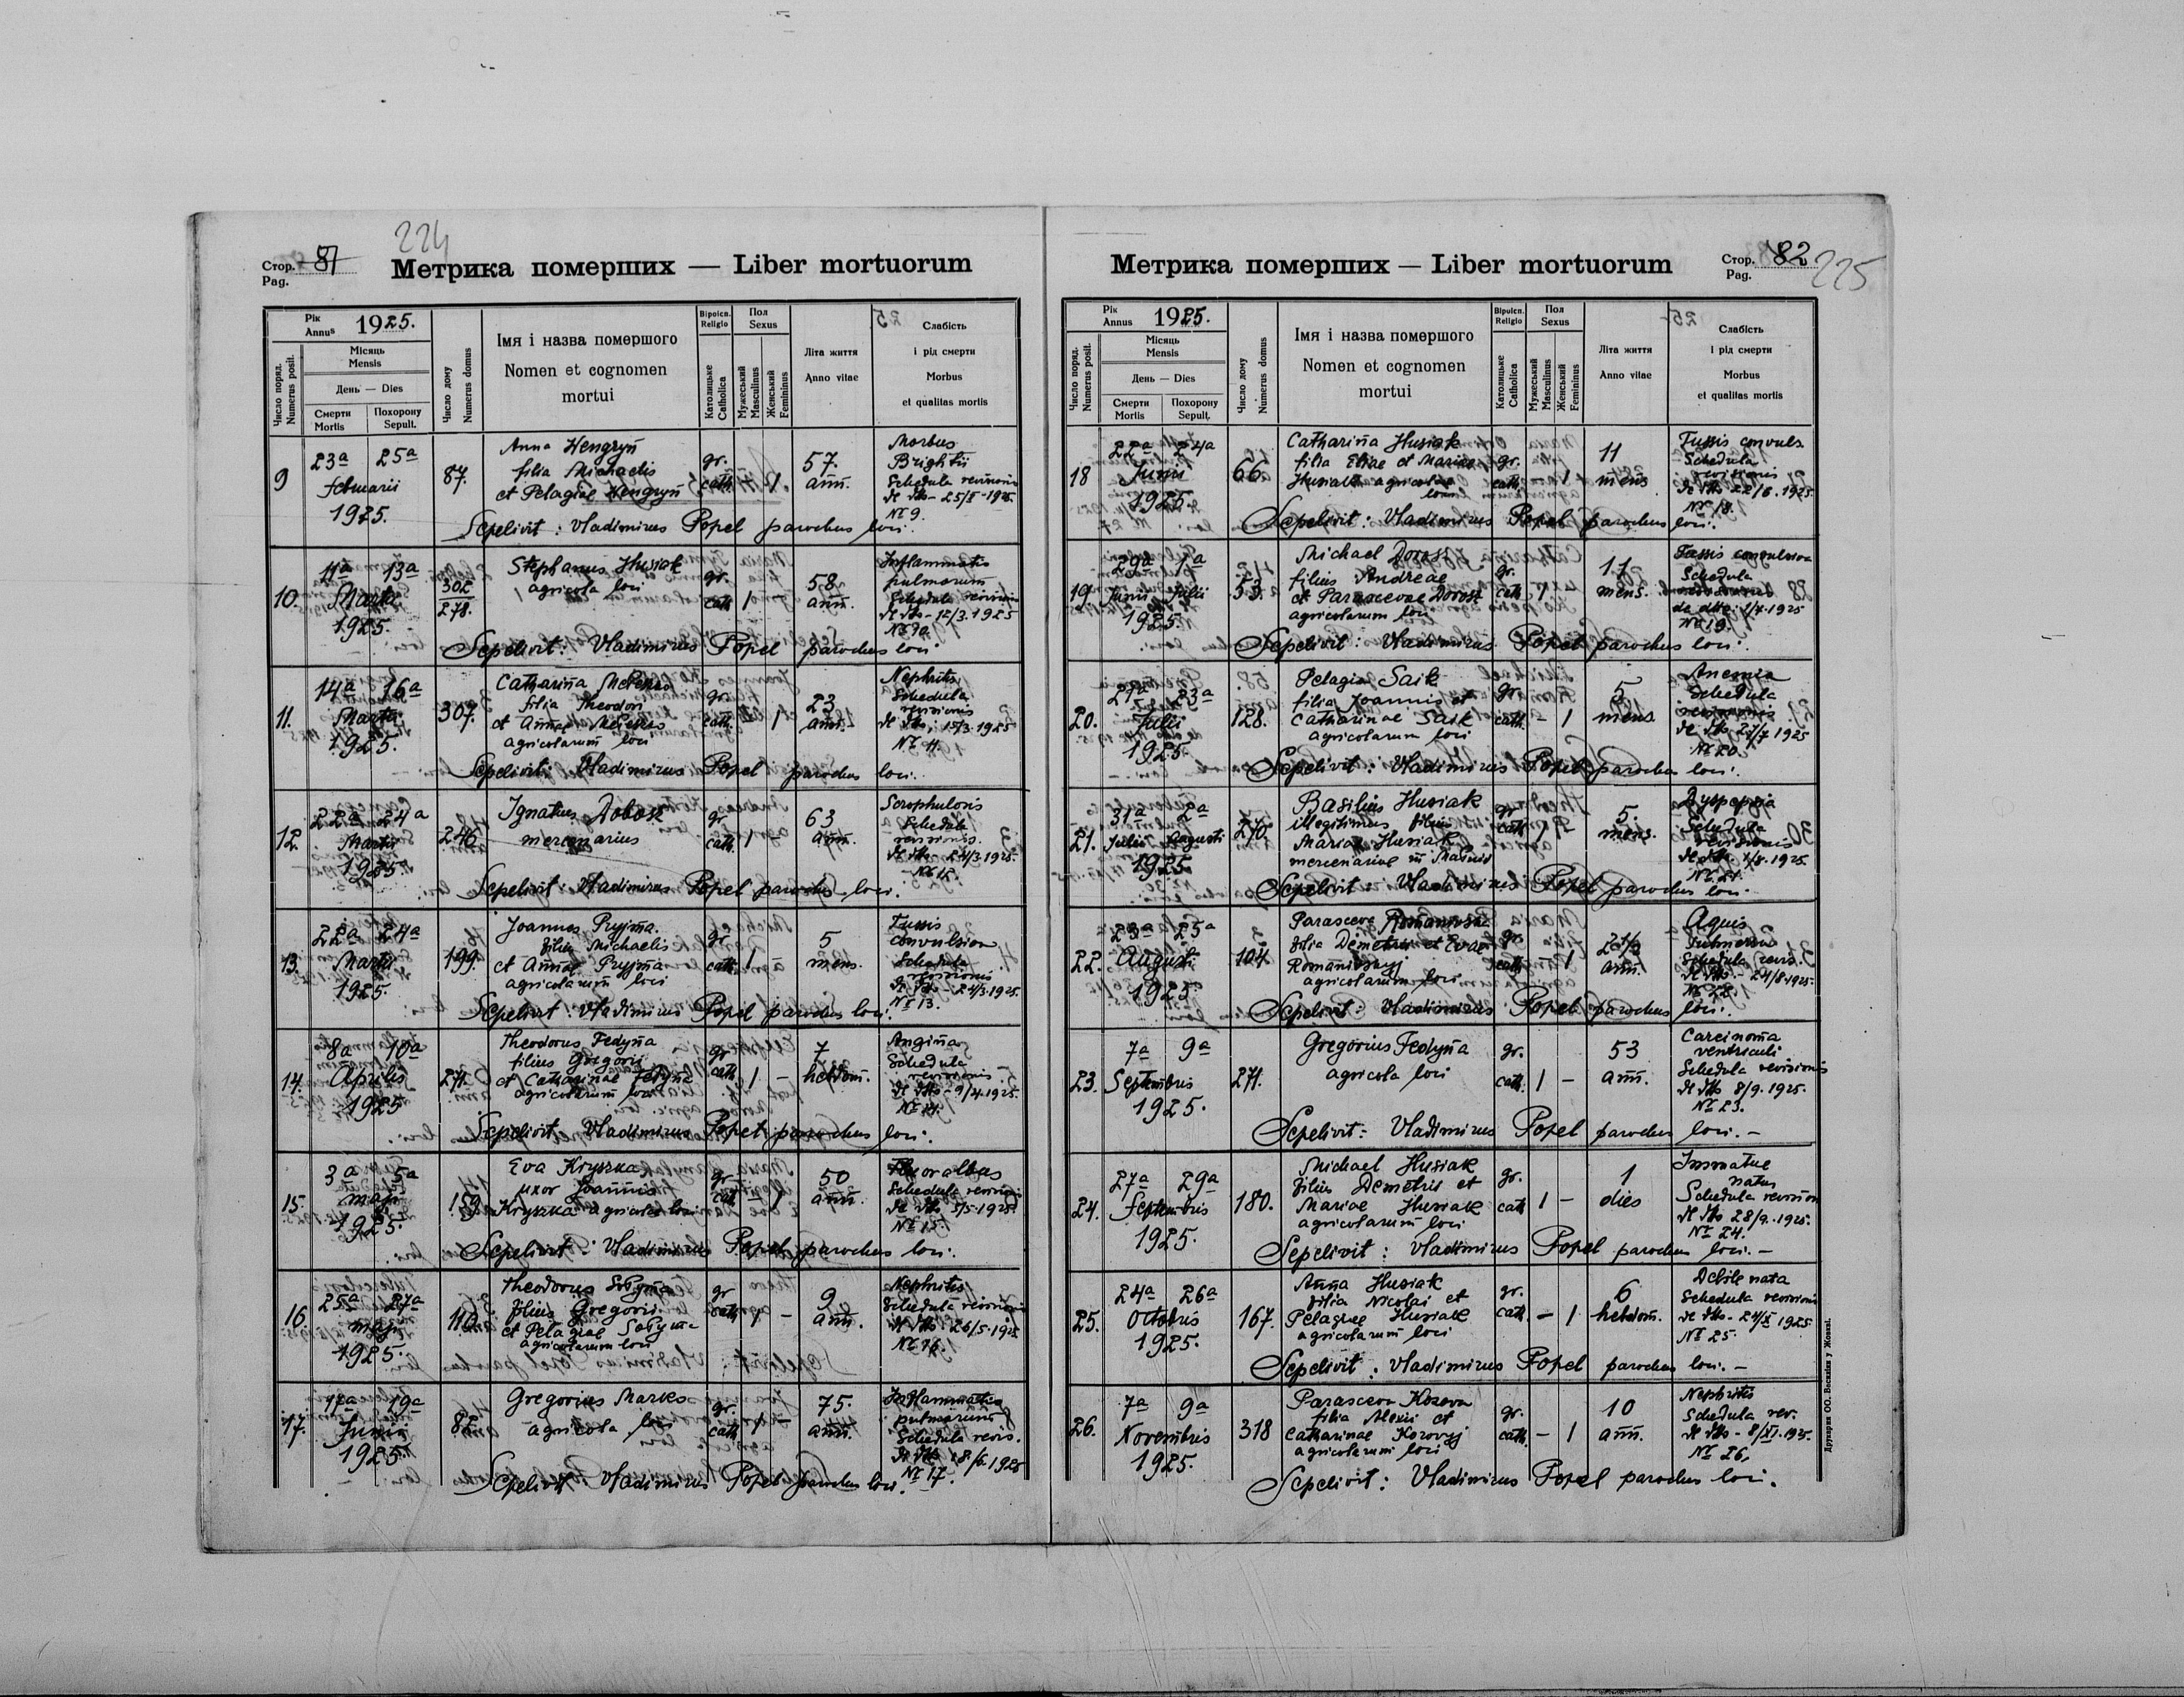 224
Стор. 81
Pag.
Метрика померших — Liber mortuorum
Рік
Annus 1925.
Місяць
Mensis
День — Dies
Смерти
Mortis
Похорону
Sepult.
Число поряд.
Numerus posit.
Число дому
Numerus domus
Імя і назва помершого
Nomen et cognomen
mortui
Віроісп.
Religio
Католицьке
Catholica
Пол
Sexus
Мужеський
Masculinus
Женський
Femininus
Літа життя
Anno vitae
Слабість
і рід смерти
Morbus
et qualitas mortis
9 23a 25a Februarii 1925. 87.
Anna Hengryn
filia Michaelis
et Pelagiae Hengryn
gr. cath. 1 57. ann.
Morbus
Brightii
Schedula revisionis
de dto - 25/II - 1925.
№ 9.
Sepelivit: Vladimirus Popel parochus loci.
10. 11a 13a Martii 1925. 302/278.
Stephanus Husiak
agricola loci
gr. cath. 1 - 58 ann.
Inflammatio
pulmonum
Schedula revisionis
de dto - 12/3. 1925
№ 10.
Sepelivit: Vladimirus Popel parochus loci.
11. 14a 16a Martii 1925. 307.
Catharina
filia Theodori
et Annae
agricolarum loci
gr. cath. - 1 23 ann.
Nephritis
Schedula
revisionis
de dto: 15/3. 1925
№ 11.
Sepelivit: Vladimirus Popel parochus loci.
12. 22a 24a Martii 1925. 246
Ignatius Dobosz
mercenarius
gr. cath. 1 - 63 ann.
Scrophulosis
Schedula
revisionis.
de dto 24/3. 1925.
Sepelivit: Vladimirus Popel parochus loci.
13. 22a 24a Martii 1925. 199.
Joannes Pryjma.
filius Michaelis
et Annae Pryjma
agricolarum loci
gr. cath. 1 - 5 mens.
Tussis
convulsiva
Schedula
revisionis
de dto - 24/3. 1925.
№ 13.
Sepelivit: Vladimirus Popel parochus loci.
14. 8a 10a Aprilis 1925 271.
Theodorus Fedyna
filius Gregorii
et Catharinae Fedyna
agricolarum loci
gr. cath. 1 - 7 hebdom.
Angina
Schedula
revisionis
de dto - 9/4. 1925.
№ 14.
Sepelivit Vladimirus Popel parochus loci.
15. 3a 5a maji 1925. 159.
Eva Kryszka
uxor Joannis
Kryszka agricolae loci
gr. cath. - 1 50 ann.
Fluor albus
Schedula revisionis
de dto 5/5. 1925
№ 15.
Sepelivit: Vladimirus Popel parochus loci.
16. 25a 27a maji 1925. 110.
Theodorus Sołyma
filius Gregorii
et Pelagiae Sołyma
agricolarum loci
gr. cath. 1 - 9 ann.
Nephritis
Schedula revisionis
de dto: 26/5. 1925
№ 16.
17. 17a 19a Junii 1925. 82.
Gregorius Marko
agricola loci
gr. cath. 1 - 75. ann.
Inflammatio
pulmonum
Schedula revis.
de dto 18/6. 1925
№ 17.
Sepelivit Vladimirus Popel parochus loci.
Метрика померших — Liber mortuorum
Стор. 82
Pag.
225
Рік
Annus 1925.
Місяць
Mensis
День — Dies
Смерти
Mortis
Похорону
Sepult.
Число поряд.
Numerus posit.
Число дому
Numerus domus
Імя і назва помершого
Nomen et cognomen
mortui
Віроісп.
Religio
Католицьке
Catholica
Пол
Sexus
Мужеський
Masculinus
Женський
Femininus
Літа життя
Anno vitae
Слабість
і рід смерти
Morbus
et qualitas mortis
18 22a 24a Junii 1925. 66.
Catharina Husiak
filia Eliae et Mariae
Husiak agricolarum
loci
gr. cath. - 1 11 mens
Tussis convuls.
Schedula
revisionis
de dto 22/6. 1925.
№ 18.
Sepelivit: Vladimirus Popel parochus loci.
19. 29a 1a Junii Julii 1925. 53.
Michael Dorosz
filius Andreae
et Parascevae Dorosz
agricolarum loci
gr. cath. 1 11 mens.
Tussis convulsiva
Schedula
de dto. 1/7. 1925
№ 19.
Sepelivit: Vladimirus Popel parochus loci.
20. 21a 23a Julii 1925. 128.
Pelagia Saik
filia Joannis et
Catharinae Saik
agricolarum loci
gr. cath. - 1 5 mens.
Anemia
Schedula
revisionis
№ 20.
Sepelivit: Vladimirus Popel parochus loci.
21. 31a 2a Julii Augusti 1925. 270.
Basilius Husiak
illegitimus filius
Mariae Husiak
mercenariae
gr. cath. 1 - 5. mens.
Dyspepsia
Schedula
revisionis
de dto. 1/8. 1925.
№ 21.
Sepelivit: Vladimirus Popel parochus loci.
22. 23a 25a Augusti 1925 104.
Parasceva
filia Demetrii et Evae
Romaniwskyj
agricolarum loci
gr. cath. - 1 2 1/2 ann.
Schedula revis.
de dto - 24/8. 1925.
№ 22.
Sepelivit: Vladimirus Popel parochus loci.
23. 7a 9a Septembris 1925. 271.
Gregorius Fedyna
agricola loci
gr. cath. 1 - 53 ann.
Carcinoma
ventriculi
Schedula revisionis
de dto 8/9. 1925.
№ 23.
Sepelivit: Vladimirus Popel parochus loci. -
24. 27a 29a Septembris 1925. 180.
Michael Husiak
filius Demetrii et
Mariae Husiak
agricolarum loci
gr. cath 1 - 1 dies
Immatue
natus
Schedula revision
de dto 28/9. 1925.
№ 24.
Sepelivit: Vladimirus Popel parochus loci. -
25. 24a 26a Octobris 1925. 167.
Anna Husiak
filia Nicolai et
Pelagiae Husiak
agricolarum loci
gr. cath. - 1 6 hebdom.
Debile nata
Schedula revisionis
de dto - 24/X 1925
№ 25.
Sepelivit: Vladimirus Popel parochus loci. -
26. 7a 9a Novembris 1925. 318
Parasceva Kozova
filia Alexii et
Catharinae Kozovyj
agricolarum loci
gr. cath. - 1 10 ann.
Nephritis
Schedula rev.
de dto - 8/XI. 1925.
№ 26.
Sepelivit: Vladimirus Popel parochus loci.
Друкарня ОО. Василіян у Жовкві.